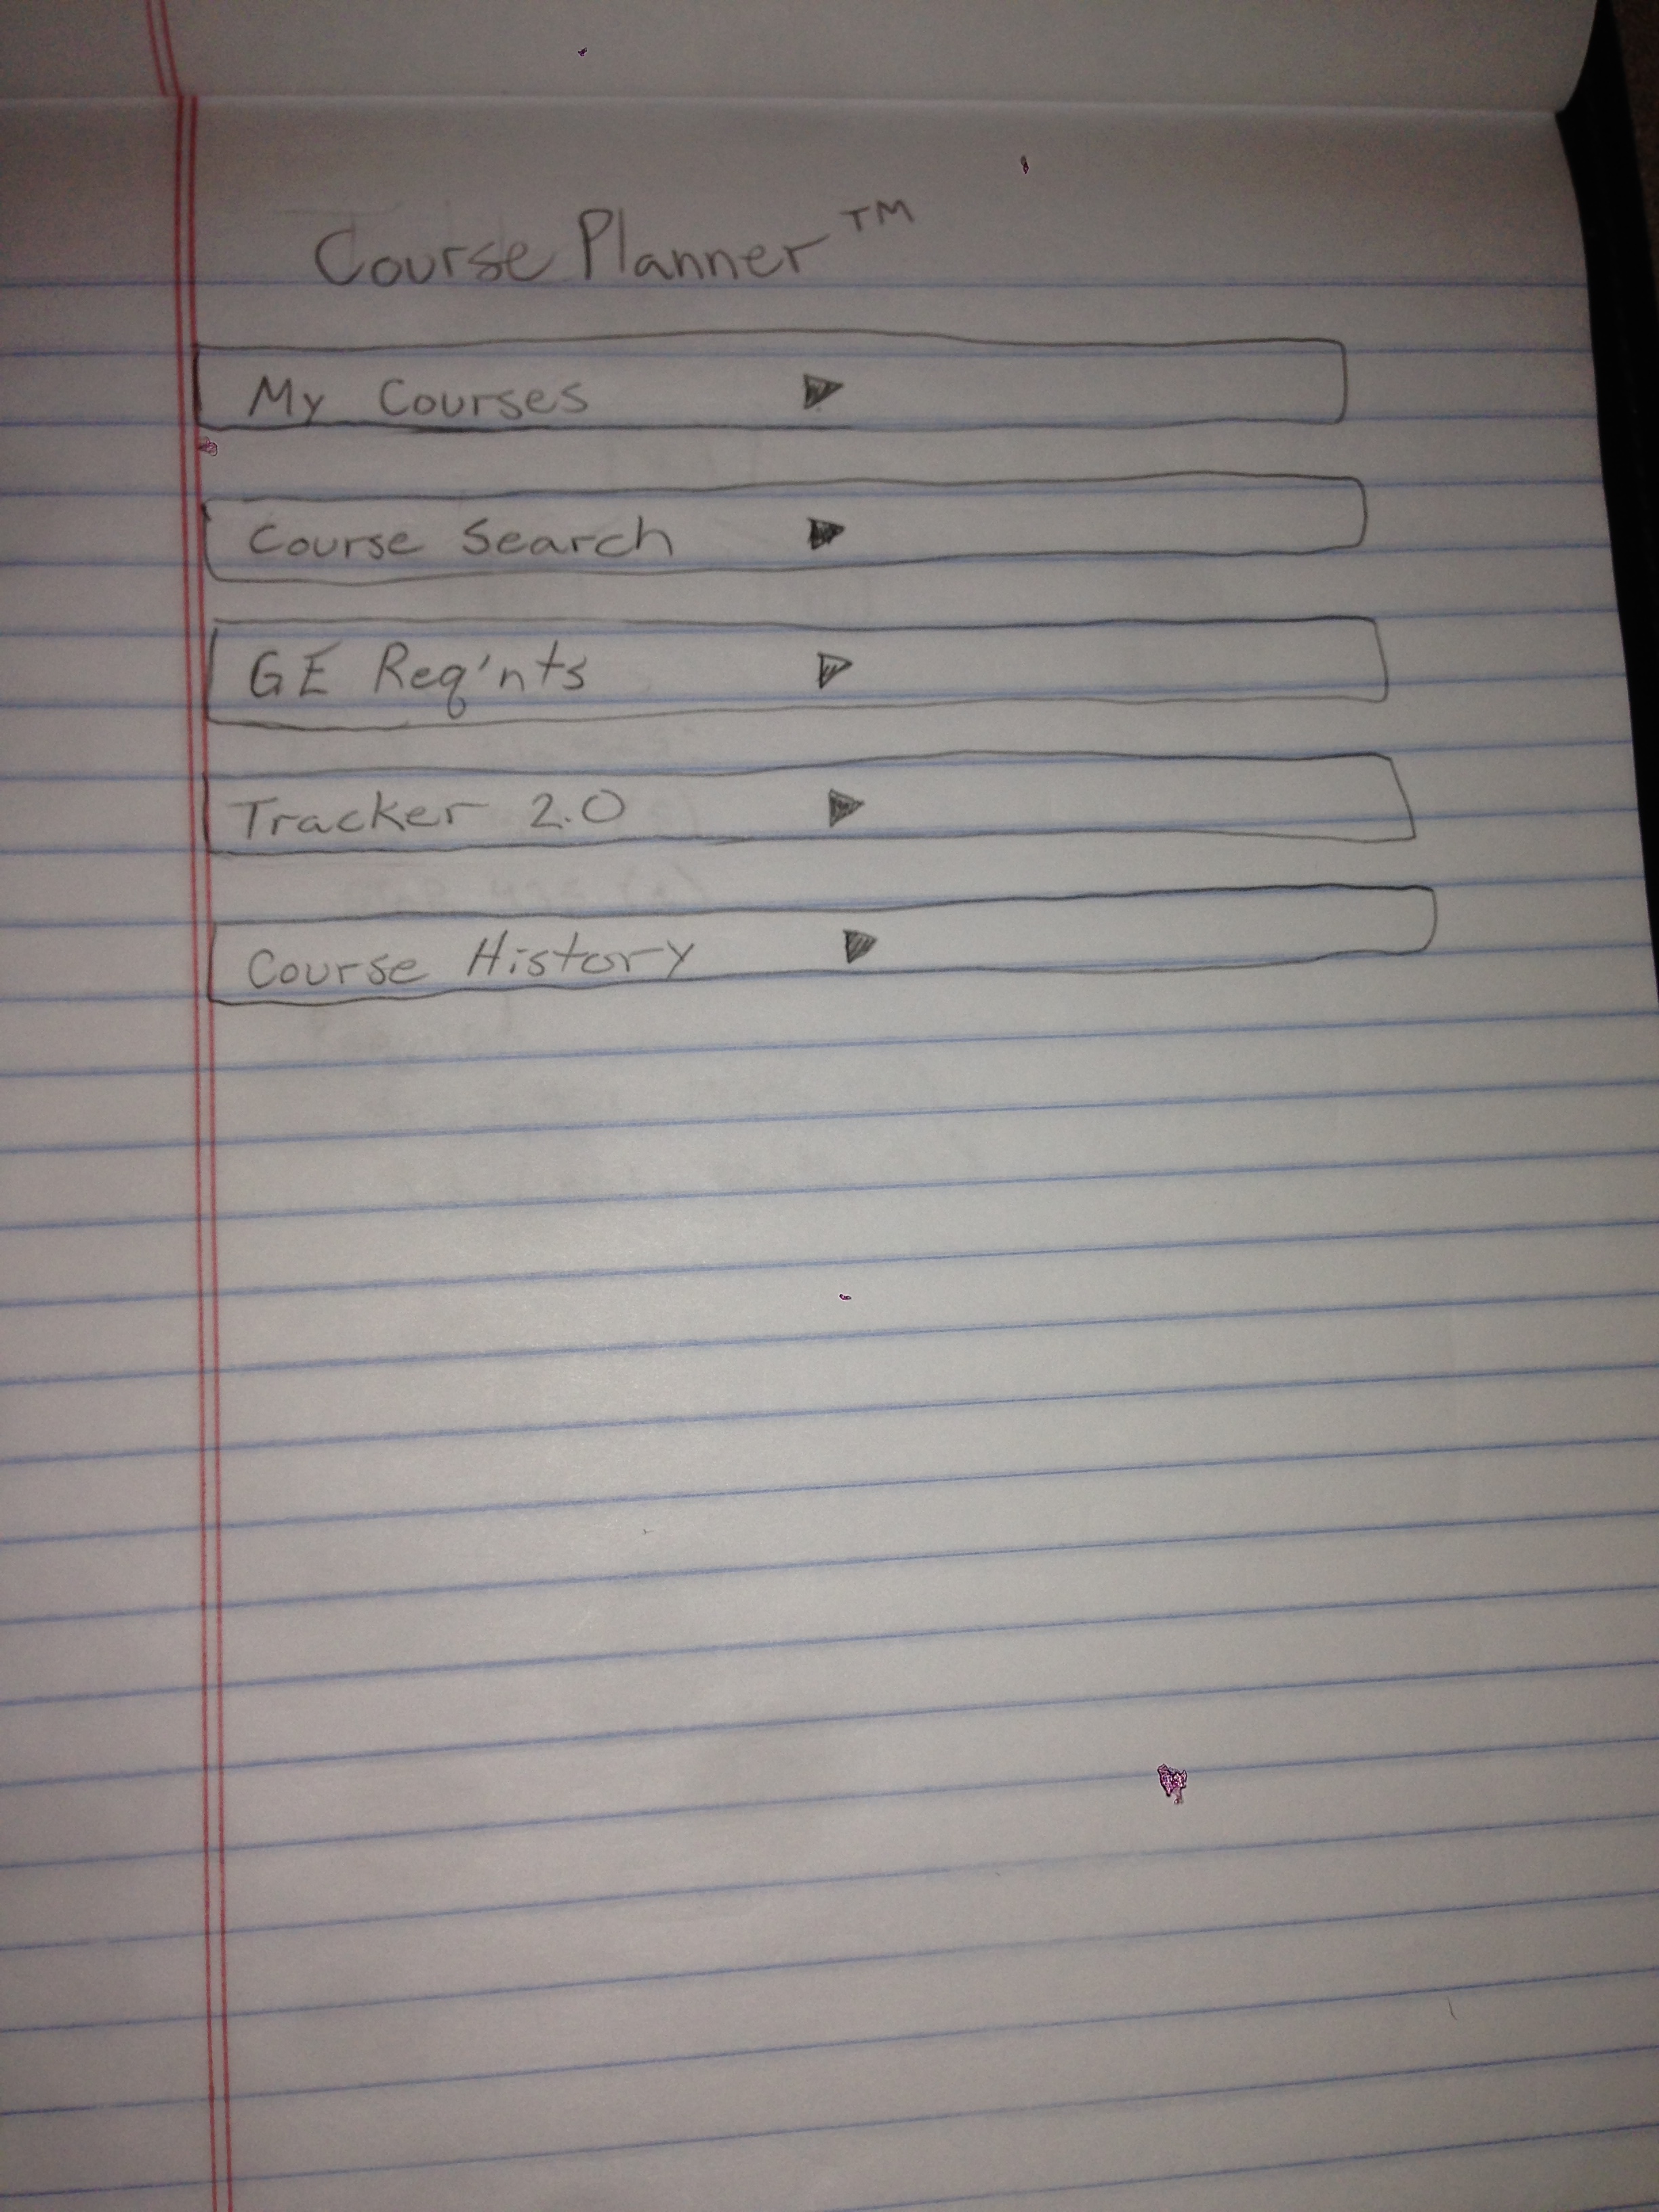 Course Planner™
My Courses
Course Search
GE Req'nts
Tracker 2.0
Course History